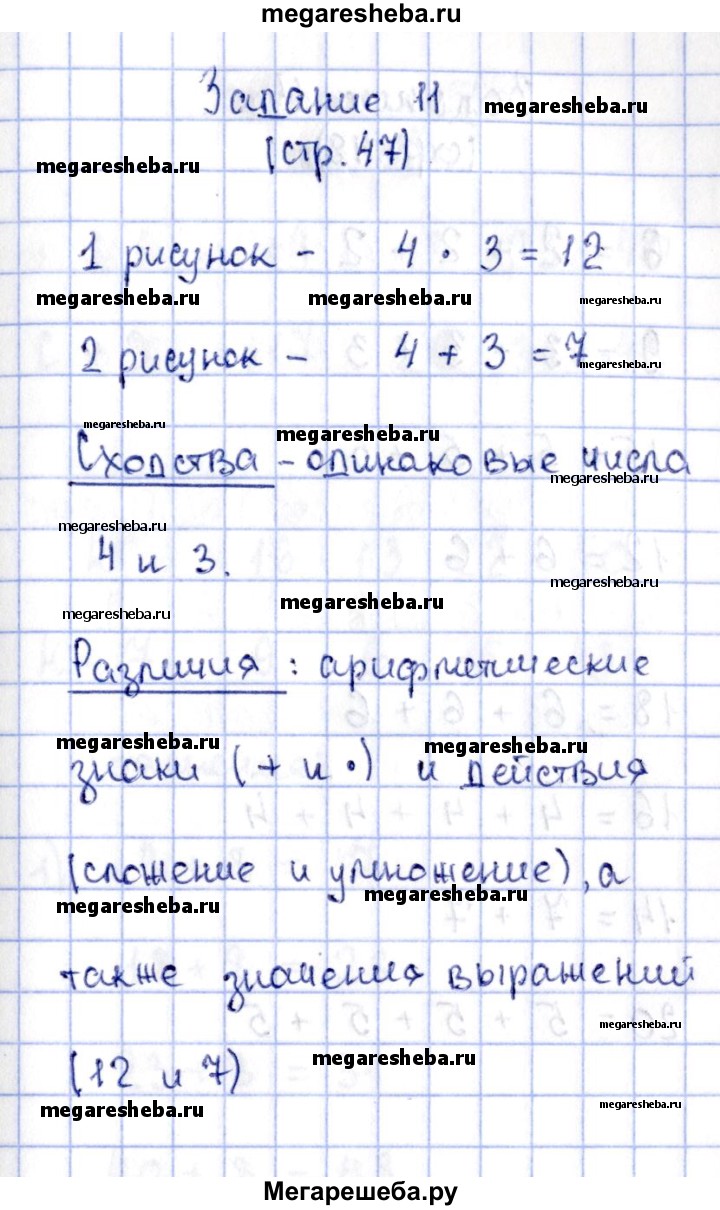 megaresheba.ru
Задание 11
megaresheba.ru
(стр. 47)
megaresheba.ru
1 рисунок - 4 · 3 = 12
megaresheba.ru megaresheba.ru megaresheba.ru
2 рисунок - 4 + 3 = 7
megaresheba.ru
megaresheba.ru
megaresheba.ru
Сходства - одинаковые числа
megaresheba.ru
megaresheba.ru
4 и 3.
megaresheba.ru
megaresheba.ru
megaresheba.ru
Различия : арифметические
megaresheba.ru megaresheba.ru
знаки (+ и ·) и действия
(сложение и умножение), а
megaresheba.ru megaresheba.ru
также значения выражений
megaresheba.ru
(12 и 7)
megaresheba.ru
megaresheba.ru
megaresheba.ru
Мегарешеба.ру